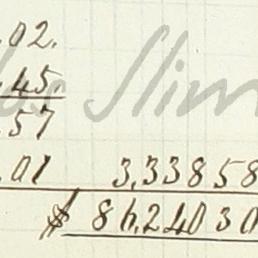 .02.
.45
.57
.01 3,33858
$ 86,24030